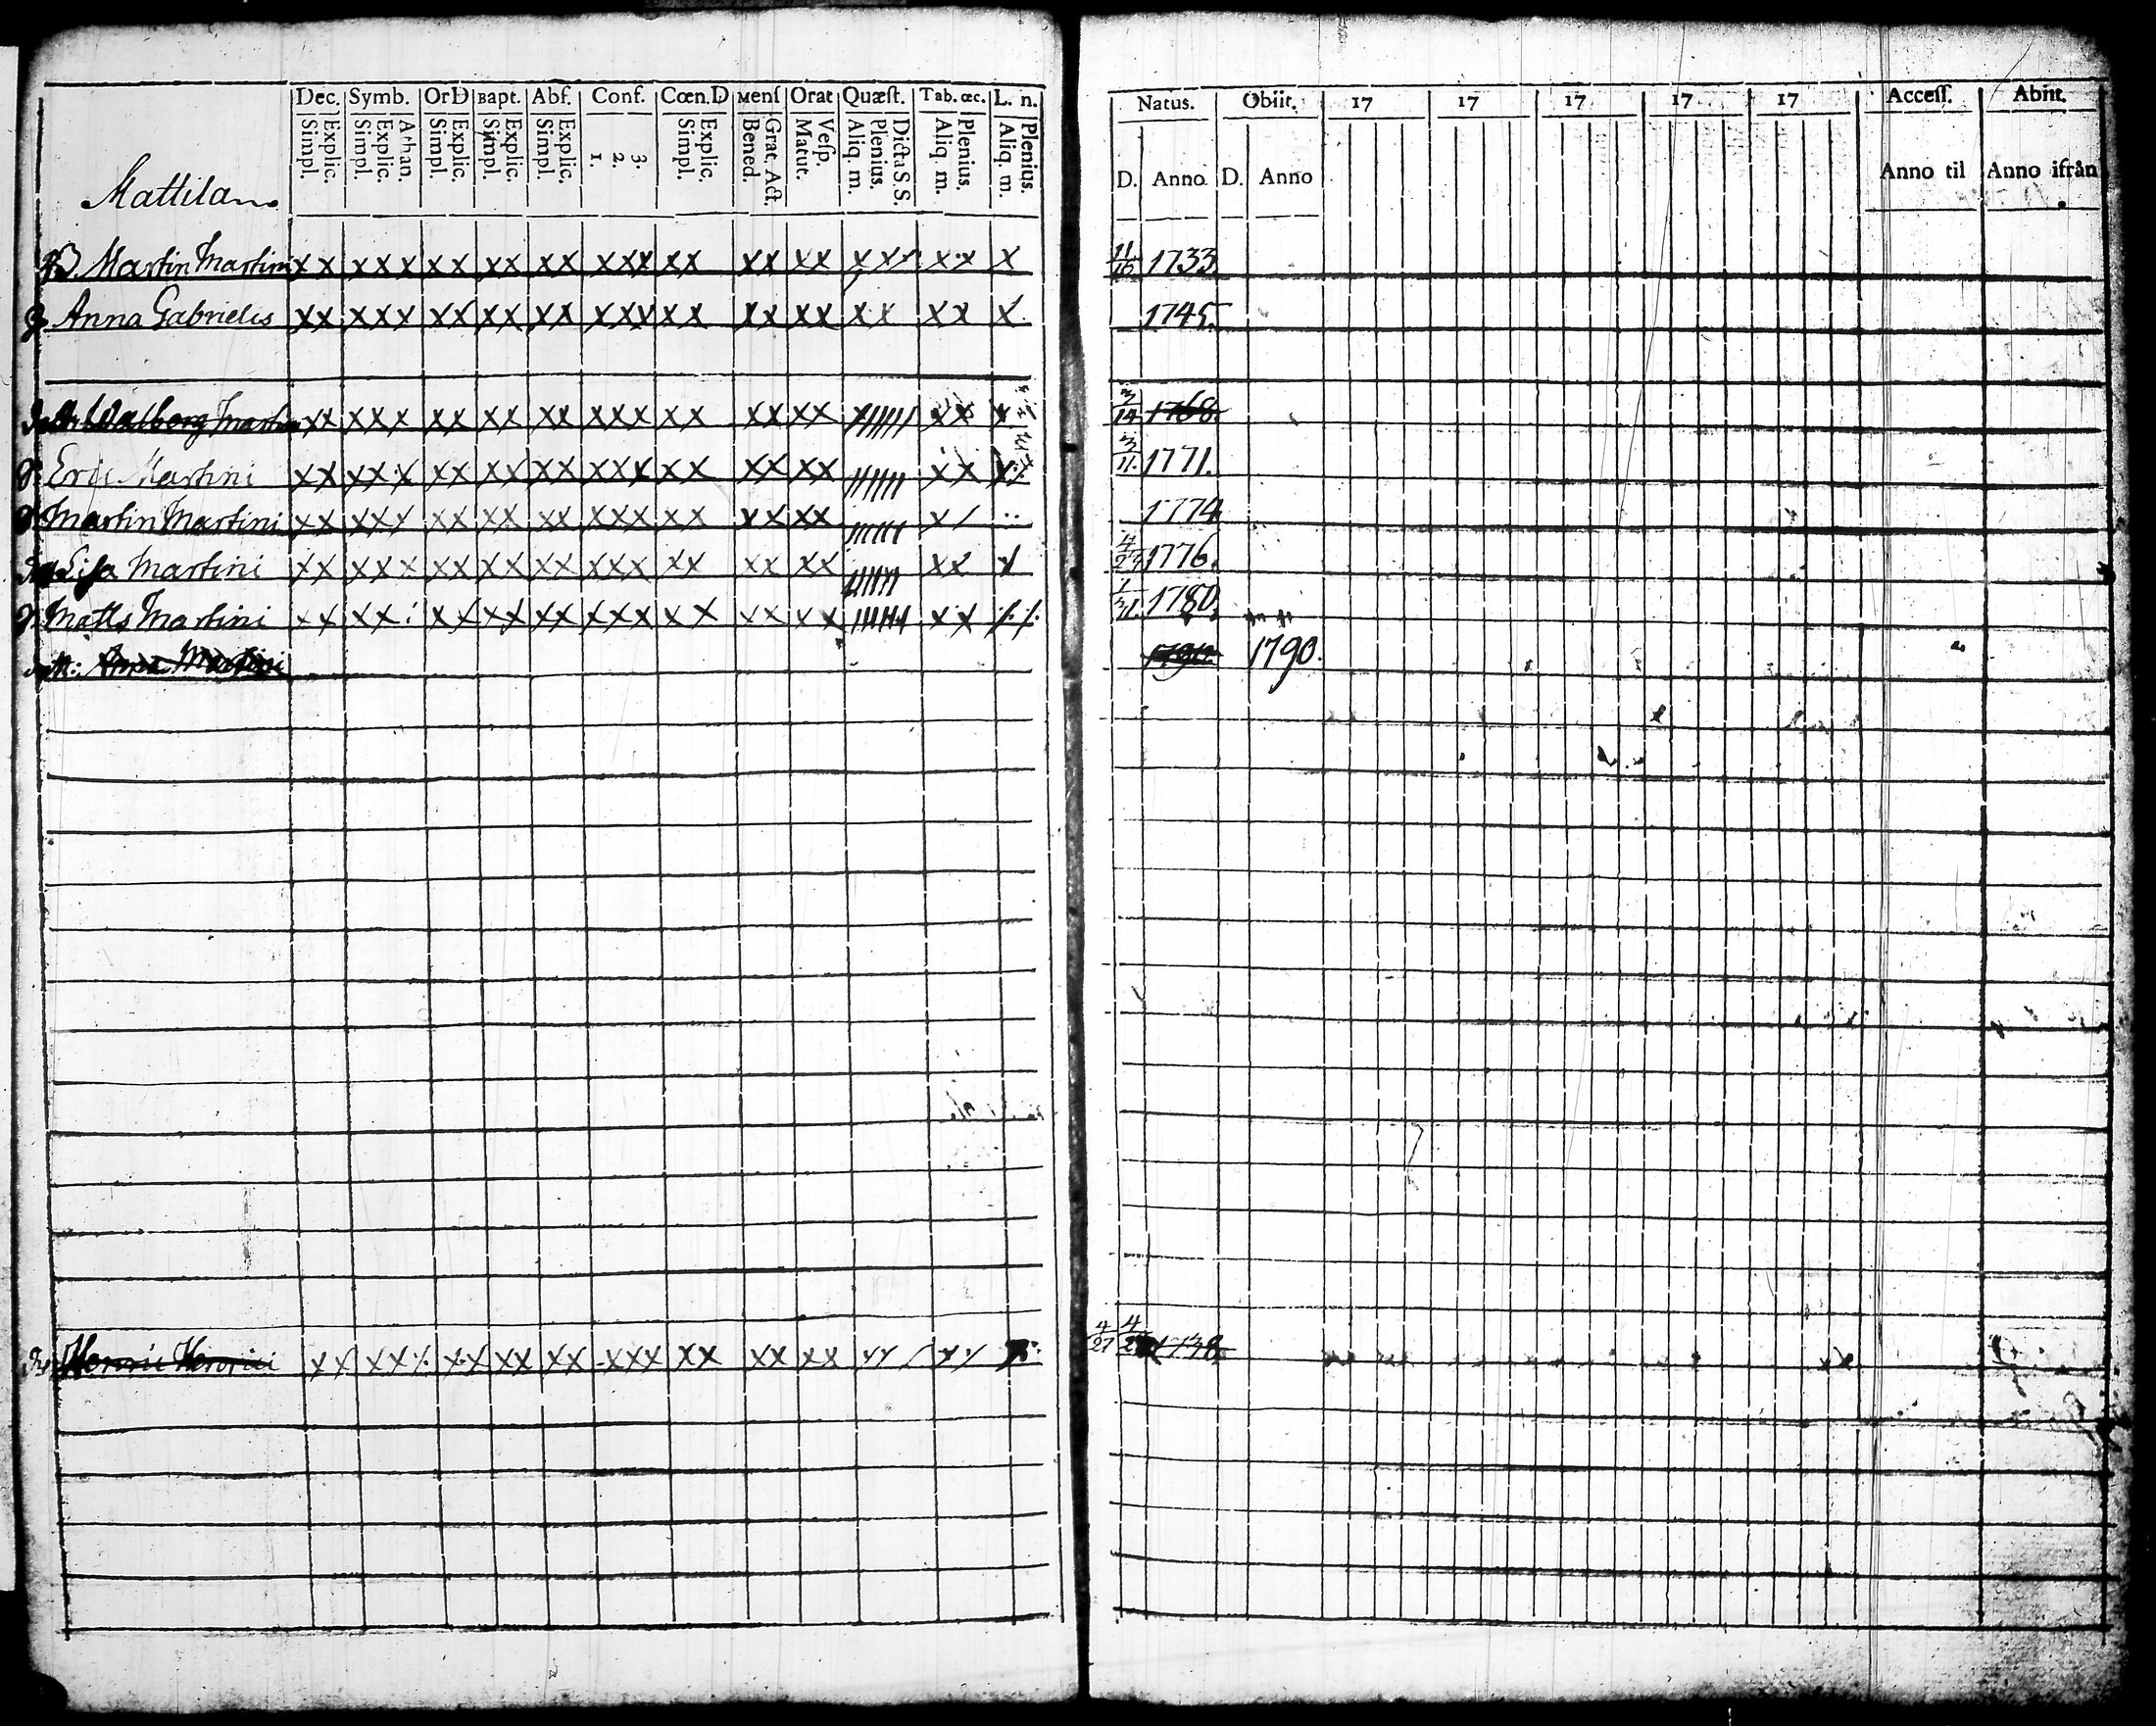 Dec. Symb. OrD Bapt. Abſ. Conf. Cœn.D Menſ Orat Quæſt. Tab. œc. L. n. Natus. Obiit. 17 17 17 17 17 Acceſſ. Abiit.
Simpl. Explic. Simpl. Explic. Athan. Simpl. Explic. Simpl. Explic. Simpl. Explic. 1. 2. 3. Simpl. Explic. Bened. Grat. Act. Matut. Veſp. Aliq. m. Plenius. Dicta S.S. Aliq. m. Plenius. Aliq. m. Plenius. D. Anno D. Anno Anno til Anno ifrån
Mattila
B. Martin Martini x x x x x x x x x x x x x x x x x x x x x x x x x x 11/10 1733
Anna Gabrielis x x x x x x x x x x x x x x x x x x x x x x x x 1745.
Walborg Martini x x x x x x x x x x x x x x x x x x x x x x 3/14 1768.
Eric Martini x x x x x x x x x x x x x x x x x x x x x x 3/11. 1771.
Martin Martini x x x x x x x x x x x x x x x x x x 1774
Lisa Martini x x x x x x x x x x x x x x x x x x x x x 4/27 1776.
Matts Martini x x x x x x x x x x x x x x x x x x 1/31. 1780.
Anna Martini 1790.
Henric Henrici x x x x x x x x x x x x x x x x x x 4/27 4 1738.